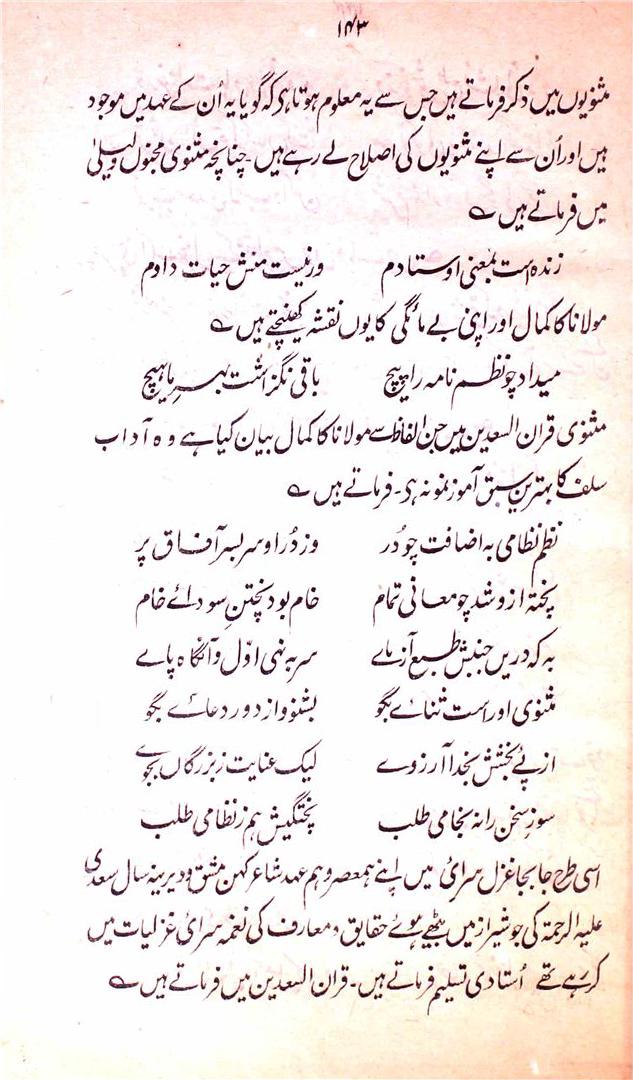 ۱۴۳
مثنویوں میں ذکر فرماتے ہیں جس سے یہ معلوم ہوتا ہی کہ گویا یہ اُن کے عہد میں موجود
ہیں اور اُن سے اپنے مثنویوں کی اصلاح لے رہے ہیں۔ چنانچہ مثنوی مجنوں و لیلیٰ
میں فرماتے ہیں ؎
زندہ است بمعنی اوستادم ور نیست منش حیات دادم
مولانا کا کمال اور اپنی بے مائگی کا یوں نقشہ کھینچتے ہیں ؎
میداد چو نظم نامہ را پیچ باقی نگزاشت بہرِ ما ہیچ
مثنوی قران السعدین میں جن الفاظ سے مولانا کا کمال بیان کیا ہے وہ آداب
سلف کا بہترین سبق آموز نمونہ ہی۔ فرماتے ہیں ؎
نظم نظامی بہ اضافت چو دُر وز دُر او سر بسر آفاق پر
پختہ ازو شد چو معانی تمام خام بود پختنِ سودائے خام
بہ کہ دریں جنبش طبع آزماے سر بہ نہی اوّل و آنگاہ پاے
مثنوی اوراست ثناے بگو بشنو و از دور دعاے بگو
از پئے بخشش بخدا آر زوے لیک عنایت ز بزرگاں بجوے
سوز سخن را نہ بخامی طلب پختگیش ہم ز نظامی طلب
اسی طرح جا بجا غزل سرائی میں اپنے ہمعصر و ہم عہد شاعر کہن مشق و دیرینہ سال سعدی
علیہ الرحمۃ کی جو شیراز میں بیٹھے ہوئے حقایق و معارف کی نغمہ سرائی غزلیات میں
کر رہے تھے اُستادی تسلیم فرماتے ہیں۔ قران السعدین میں فرماتے ہیں ؎